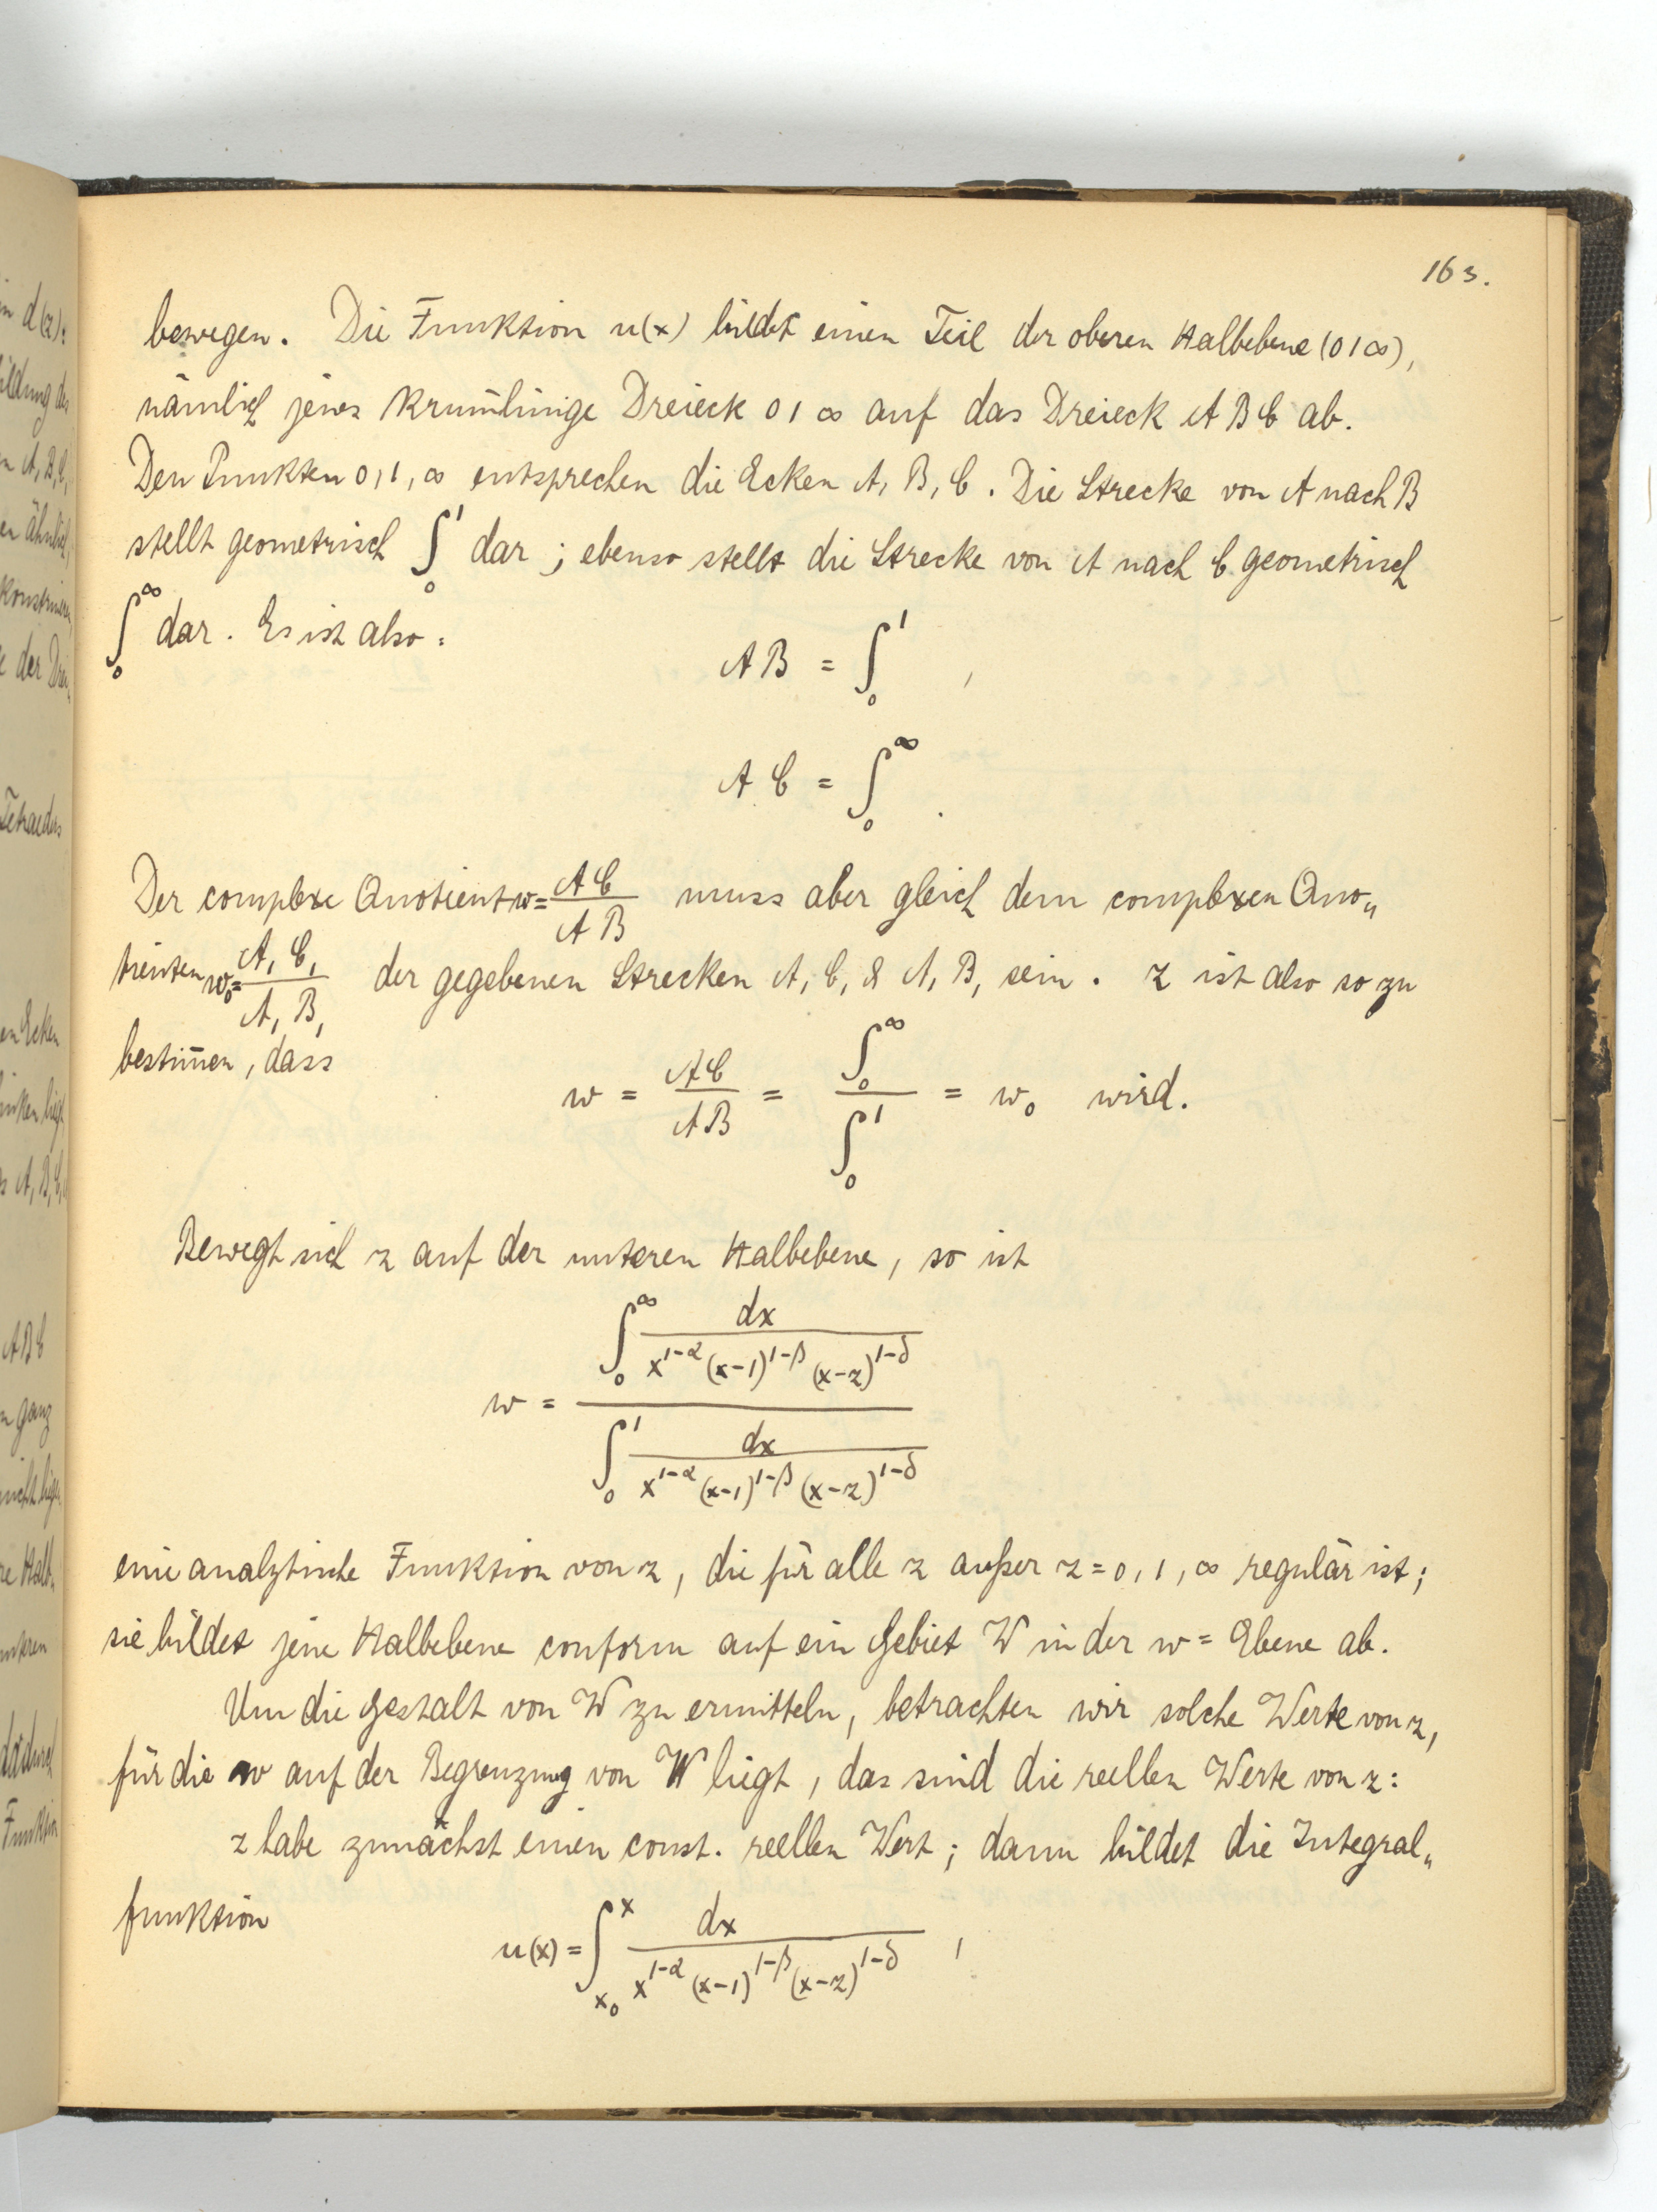 163.
bewegen. Die Funktion u(x) bildet einen Teil der oberen Halbebene (0 1 ∞),
nämlich jenes krummlinige Dreieck 0 1 ∞ auf das Dreieck A B C ab.
Den Punkten 0, 1, ∞ entsprechen die Ecken A, B, C. Die Strecke von A nach B
stellt geometrisch ∫₀¹ dar; ebenso stellt die Strecke von A nach C geometrisch
∫₀^∞ dar. Es ist also:
AB = ∫₀¹ ,
AC = ∫₀^∞ .
Der complexe Quotient w = AC/AB muss aber gleich dem complexen Quo„
tienten w₀ = A₁C₁/A₁B₁ der gegebenen Strecken A₁C₁ & A₁B₁ sein. z ist also so zu
bestim̄en, dass
w = AC/AB = ∫₀^∞ / ∫₀¹ = w₀ wird.
Bewegt sich z auf der unteren Halbebene, so ist
w = (∫₀^∞ dx / (x^(1-α) (x-1)^(1-β) (x-z)^(1-δ))) / (∫₀¹ dx / (x^(1-α) (x-1)^(1-β) (x-z)^(1-δ)))
eine analytische Funktion von z, die für alle z außer z = 0, 1, ∞ regulär ist;
sie bildet jene Halbebene conform auf ein Gebiet W in der w = Ebene ab.
Um die Gestalt von W zu ermitteln, betrachten wir solche Werte von z,
für die w auf der Begrenzung von W liegt, das sind die reellen Werte von z:
z habe zunächst einen const. reellen Wert; dann bildet die Integral„
funktion
u(x) = ∫_{x₀}^{x} dx / (x^(1-α) (x-1)^(1-β) (x-z)^(1-δ)) ,